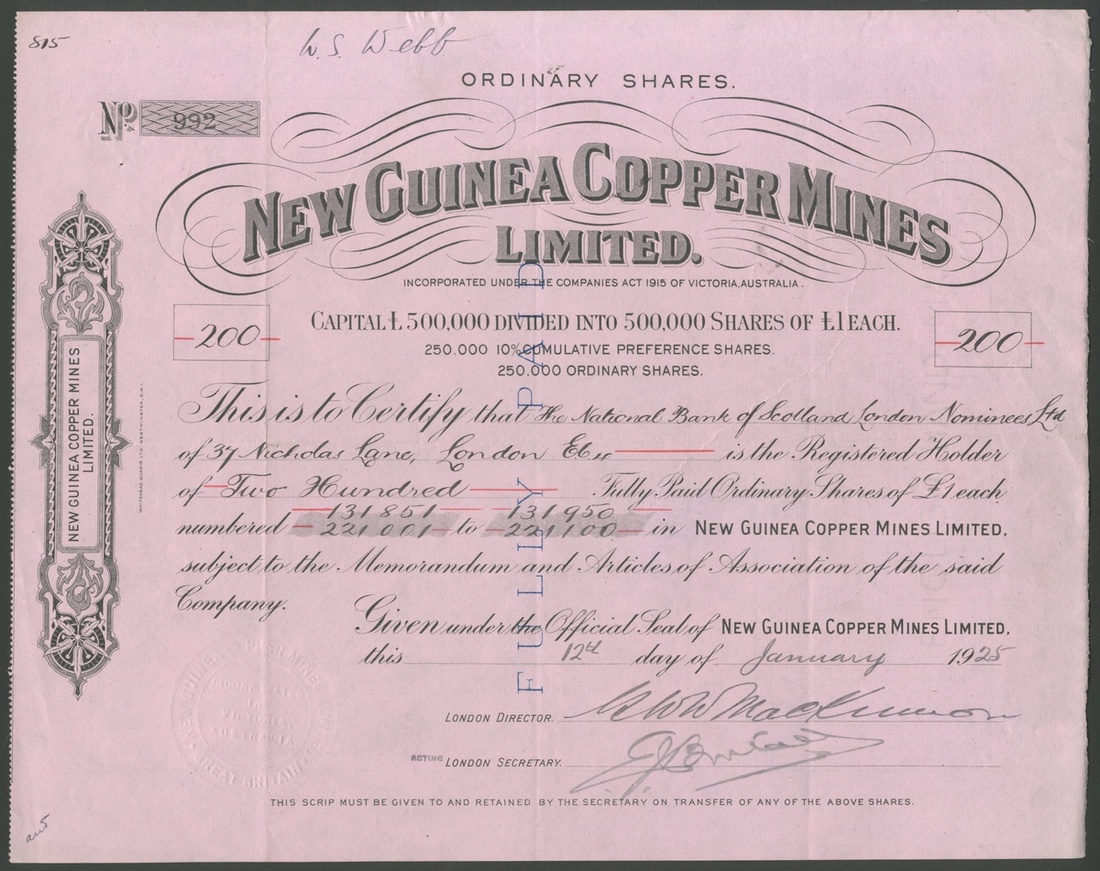 815
W. S. Webb
ORDINARY SHARES.
No. 992
NEW GUINEA COPPER MINES
LIMITED.
INCORPORATED UNDER THE COMPANIES ACT 1915 OF VICTORIA, AUSTRALIA.
200
CAPITAL £500,000 DIVIDED INTO 500,000 SHARES OF £1 EACH.
200
250.000 10% CUMULATIVE PREFERENCE SHARES.
250,000 ORDINARY SHARES.
This is to Certify that The National Bank of Scotland London Nominees Ltd
of 37 Nicholas Lane, London E.C.4 is the Registered Holder
of Two Hundred Fully Paid Ordinary Shares of £1 each
131851 131950
numbered 221001 to 221100 in NEW GUINEA COPPER MINES LIMITED,
subject to the Memorandum and Articles of Association of the said
Company.
Given under the Official Seal of NEW GUINEA COPPER MINES LIMITED,
this 12th day of January 1925
LONDON DIRECTOR.
ACTING LONDON SECRETARY.
THIS SCRIP MUST BE GIVEN TO AND RETAINED BY THE SECRETARY ON TRANSFER OF ANY OF THE ABOVE SHARES.
FULLY PAID
NEW GUINEA COPPER MINES
LIMITED.